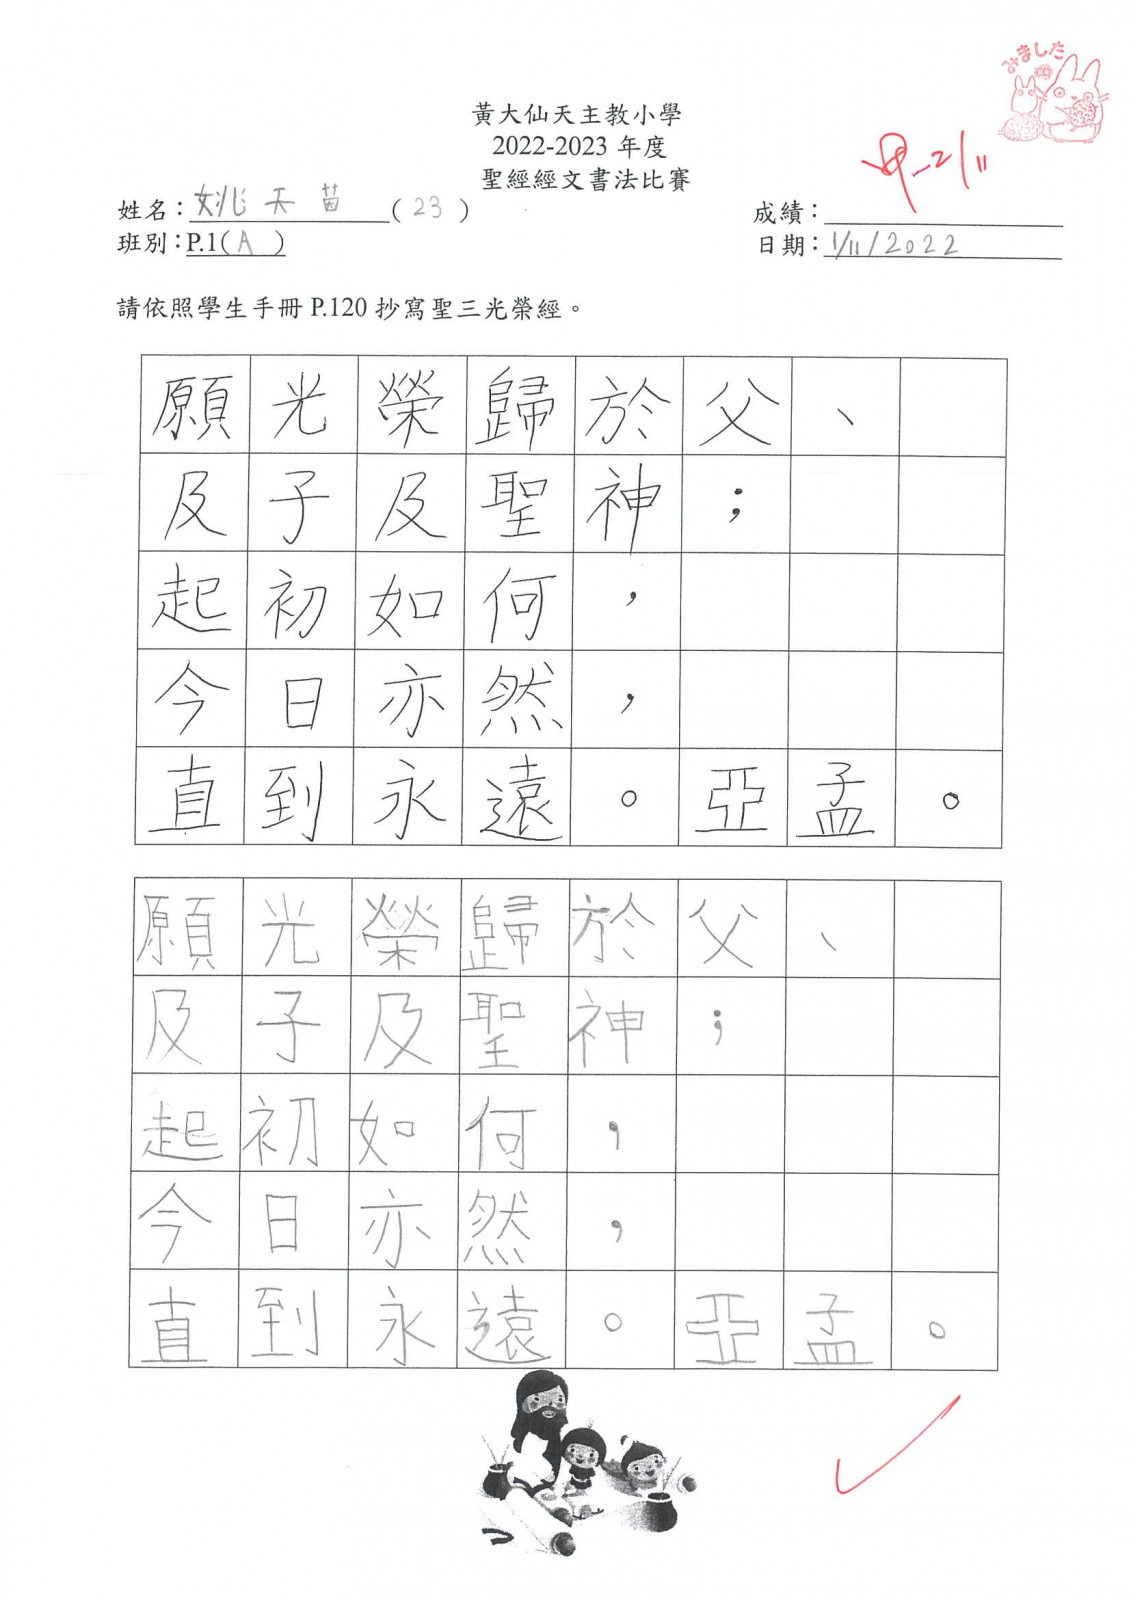 みました
黃大仙天主教小學
2022-2023 年度
聖經經文書法比賽
姓名：姚天茵（23）
成績：
班別：P.1（A）
日期：1/11/2022
2/11
請依照學生手冊 P.120 抄寫聖三光榮經。
願光榮歸於父、
及子及聖神；
起初如何，
今日亦然，
直到永遠。亞孟。
願光榮歸於父、
及子及聖神；
起初如何，
今日亦然，
直到永遠。亞孟。